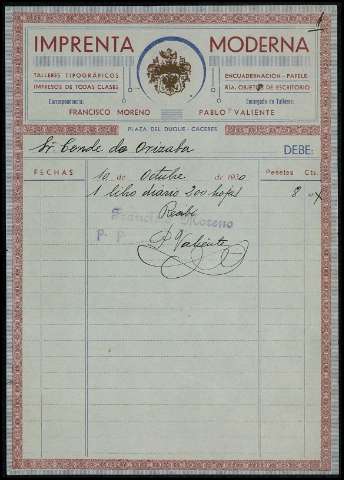 IMPRENTA MODERNA
TALLERES TIPOGRÁFICOS
IMPRESOS DE TODAS CLASES
ENCUADERNACIÓN - PAPELE-
RIA. OBJETOS DE ESCRITORIO
Correspondencia:
FRANCISCO MORENO
Encargado de Talleres:
PABLO VALIENTE
PLAZA DEL DUQUE - CÁCERES
Sr Conde de Orizaba DEBE:
FECHAS 10 de Octubre de 1930 Pesetas Cts.
1 libro diario 200 hojas 8
Recibí
Francisco Moreno
P. P.
P Valiente